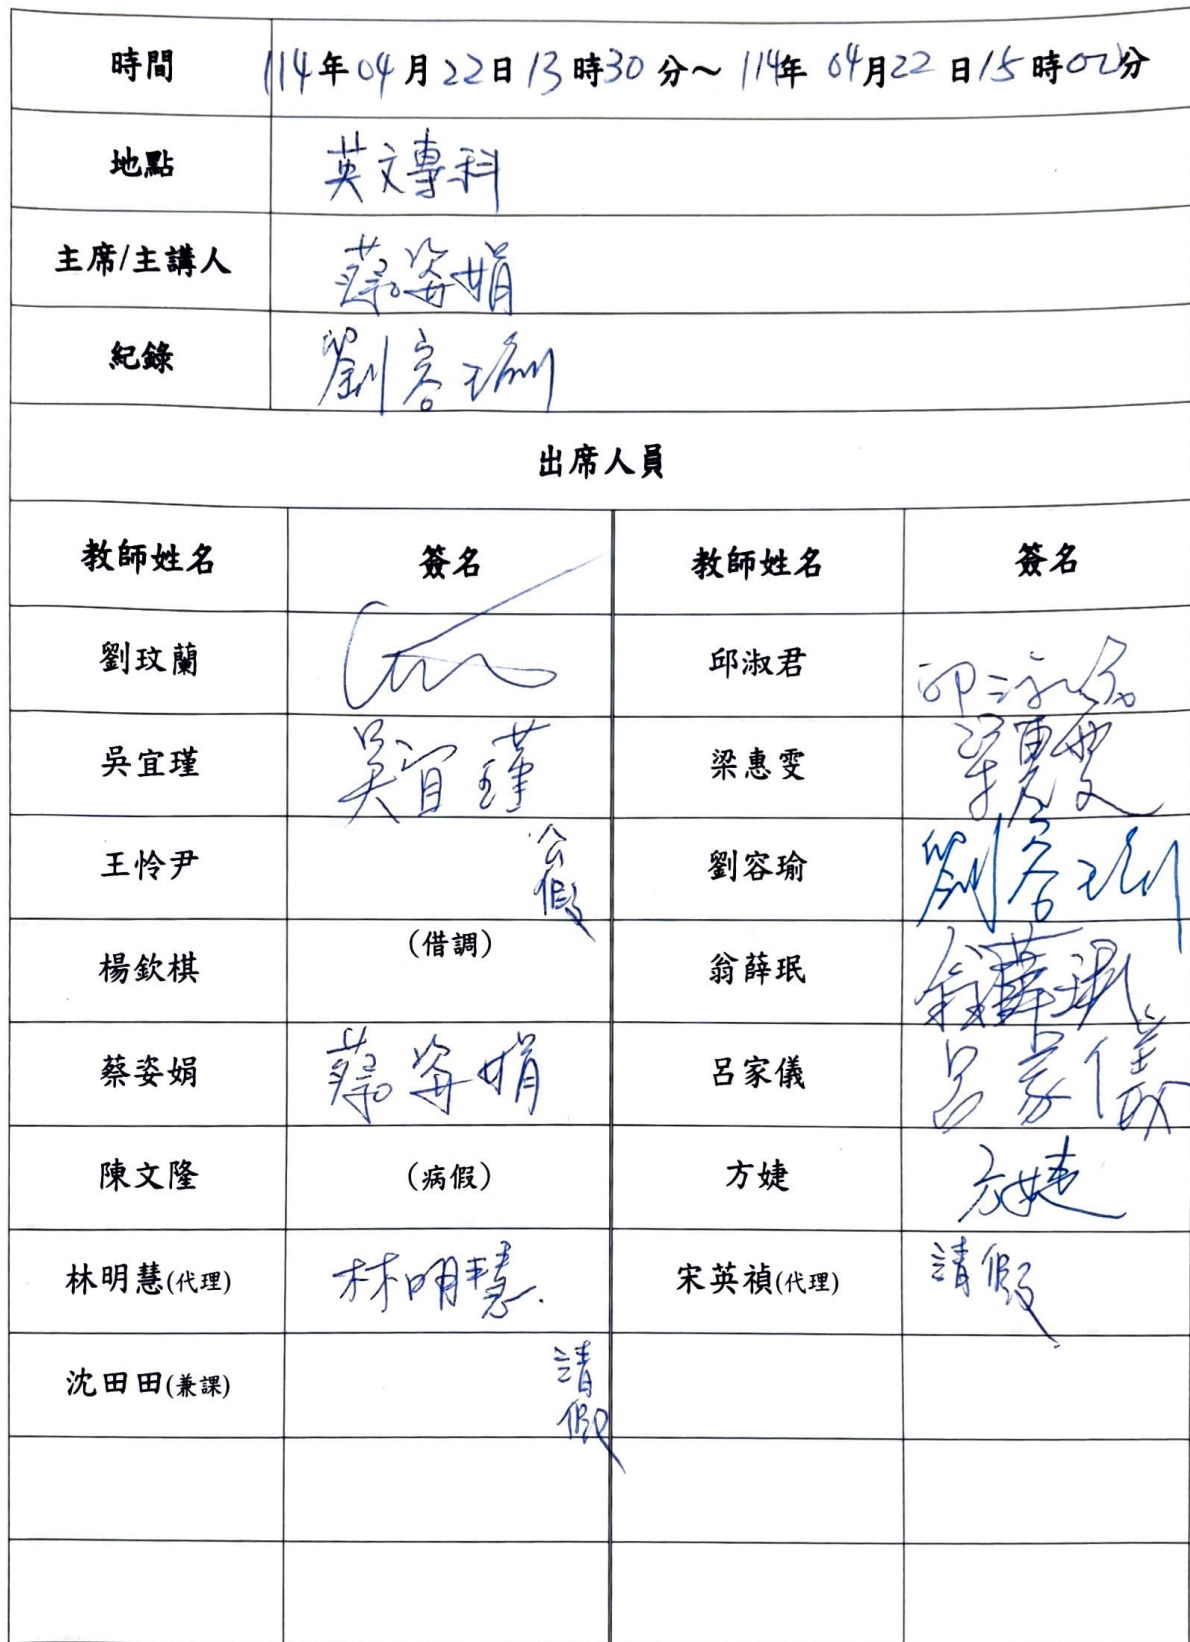 時間 114年04月22日13時30分～114年04月22日15時00分
地點 英文專科
主席/主講人 蔡姿娟
紀錄 劉容瑜
出席人員
教師姓名 簽名 教師姓名 簽名
劉玟蘭 邱淑君 邱淑君
吳宜瑾 吳宜瑾 梁惠雯 梁惠雯
王怜尹 公假 劉容瑜 劉容瑜
楊欽棋 (借調) 翁薛珉 翁薛珉
蔡姿娟 蔡姿娟 呂家儀 呂家儀
陳文隆 (病假) 方婕 方婕
林明慧(代理) 林明慧 宋英禎(代理) 請假
沈田田(兼課) 請假